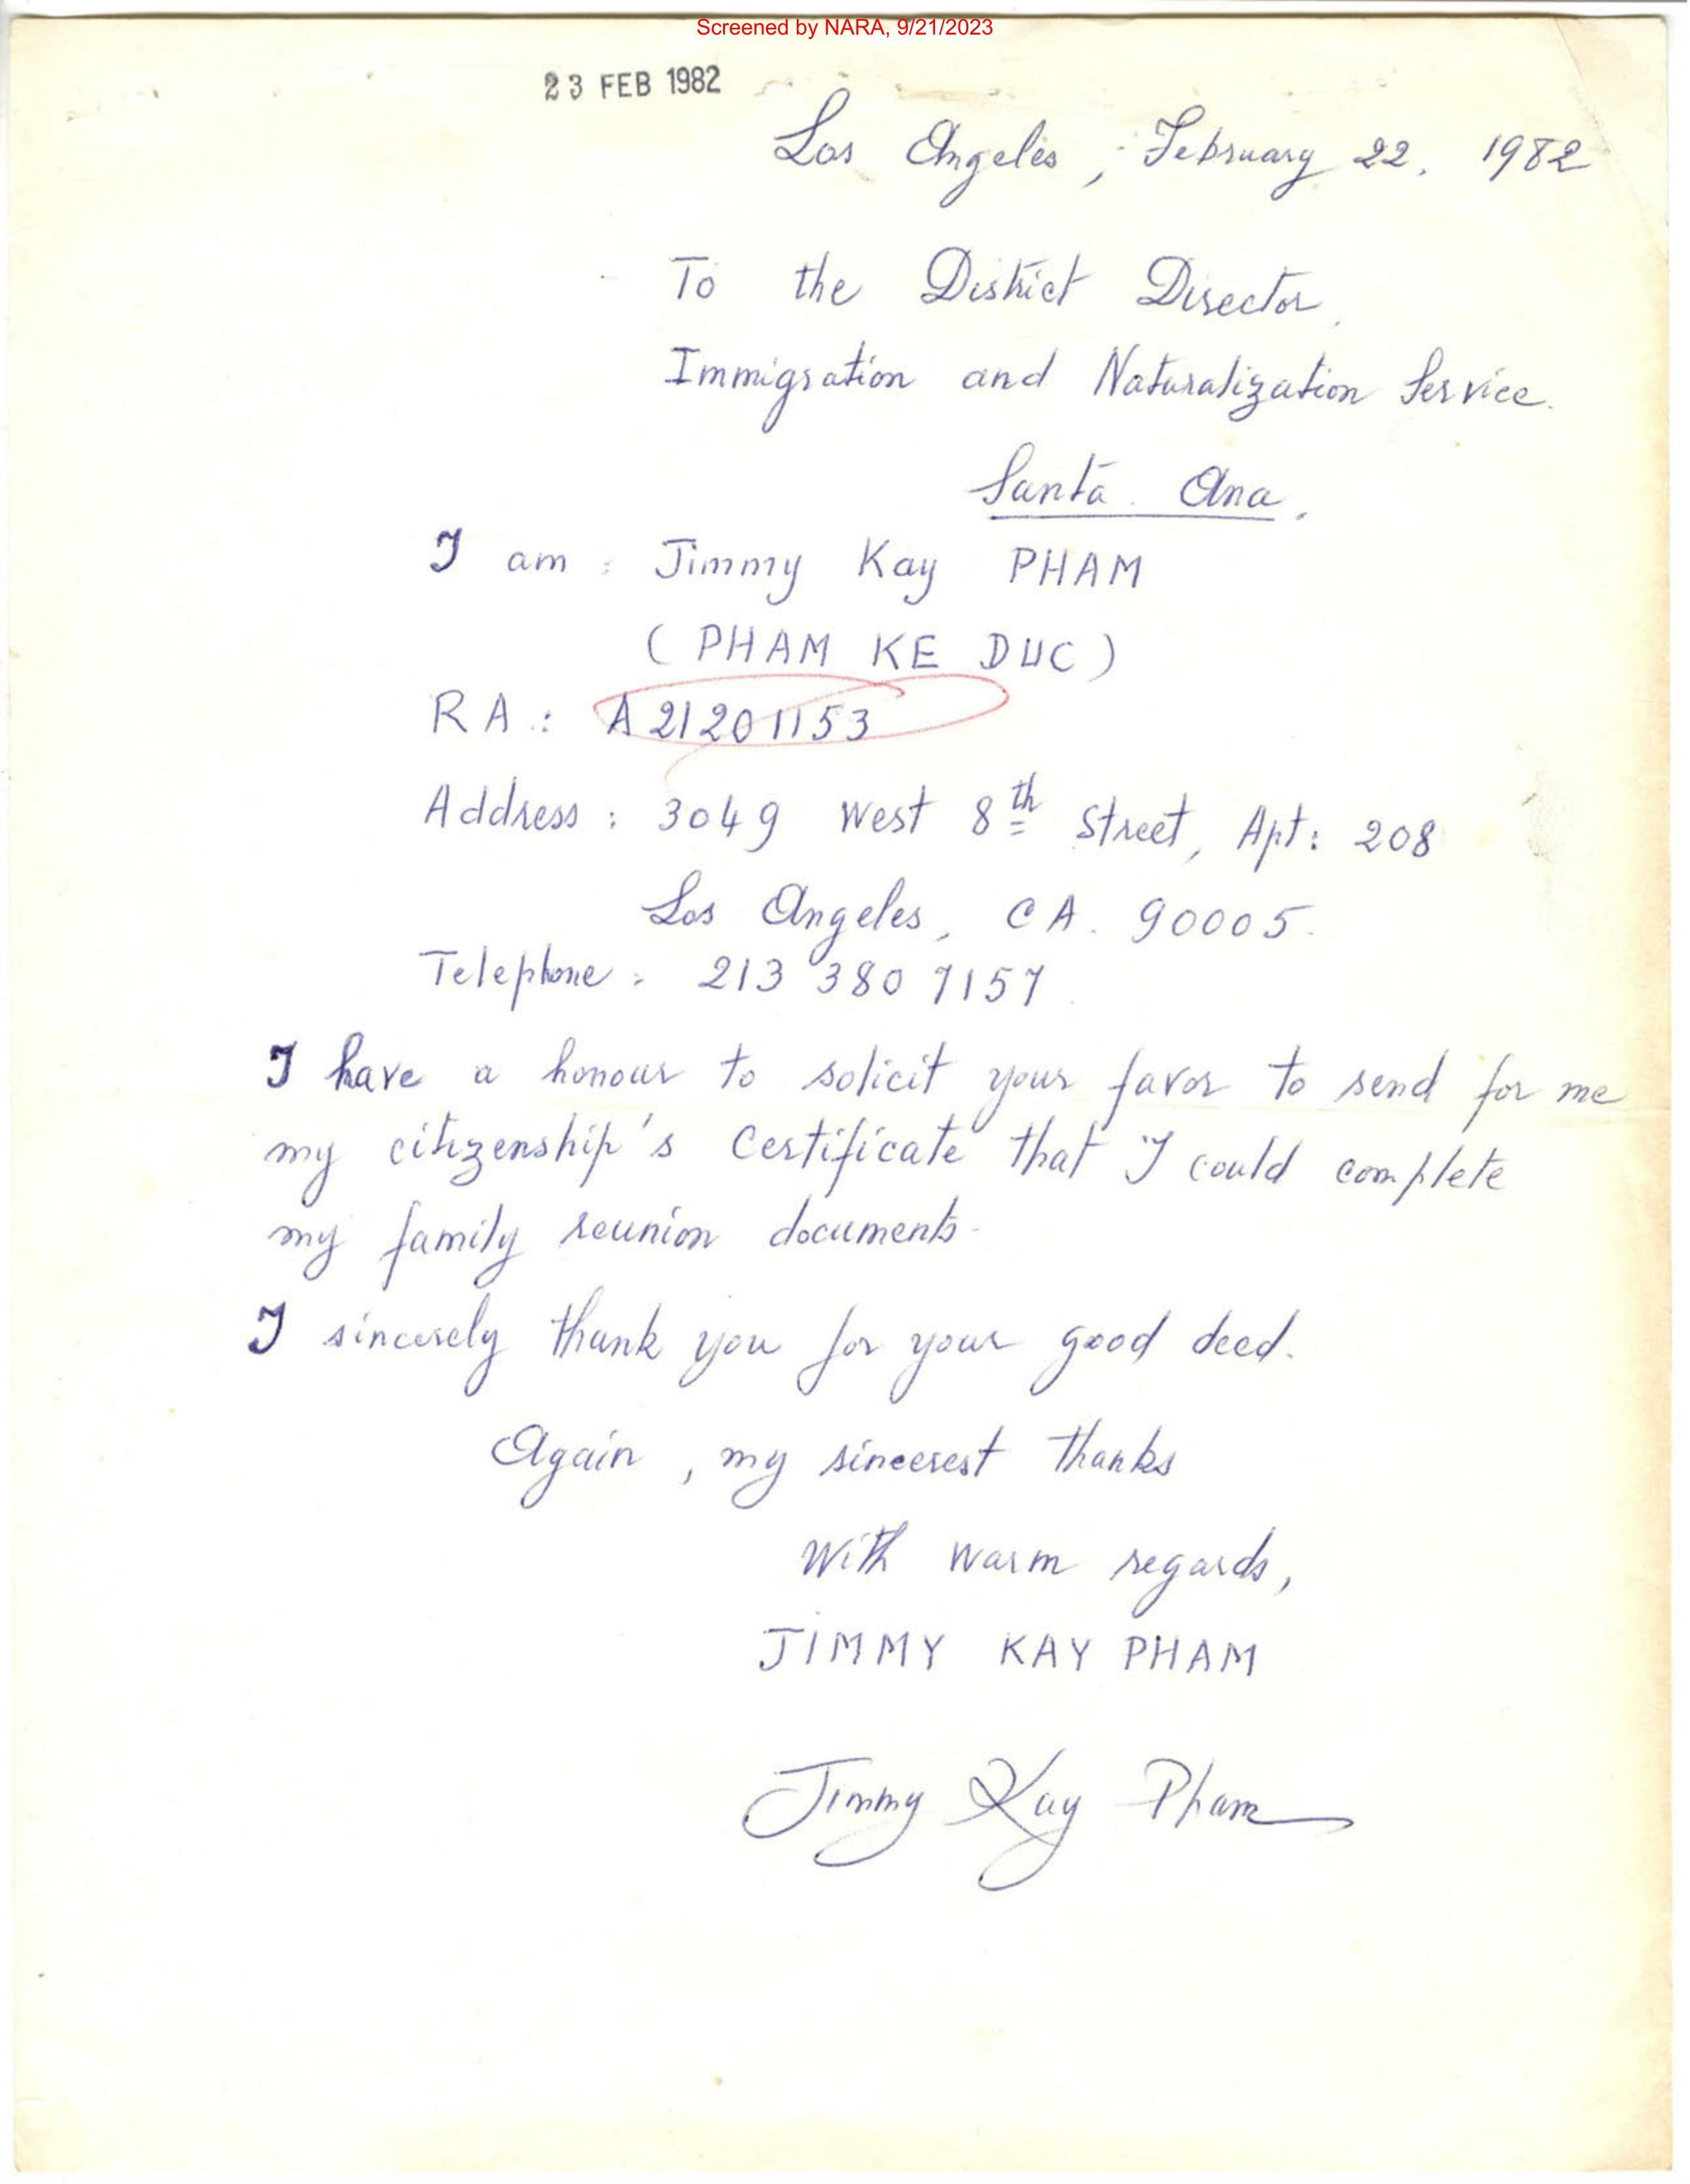 Screened by NARA, 9/21/2023
23 FEB 1982
Los Angeles, February 22, 1982
To the District Director,
Immigration and Naturalization Service.
Santa Ana.
I am : Jimmy Kay PHAM
( PHAM KE DUC )
RA : A21201153
Address : 3049 West 8th Street, Apt: 208
Los Angeles, CA. 90005.
Telephone : 213 380 7157
I have a honour to solicit your favor to send for me
my citizenship's certificate that I could complete
my family reunion documents.
I sincerely thank you for your good deed.
Again, my sincerest thanks
With warm regards,
JIMMY KAY PHAM
Jimmy Kay Pham